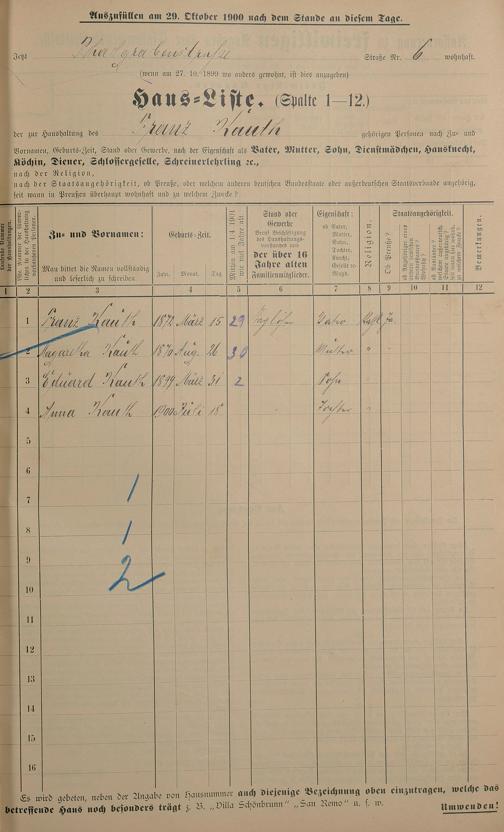 Auszufüllen am 29. Oktober 1900 nach dem Stande an diesem Tage.
Jetzt Straße Nr. 6 wohnhaft.
(wenn am 27. 10. 1899 wo anders gewohnt, ist dies anzugeben)
Haus-Liste. (Spalte 1—12.)
der zur Haushaltung des Franz Kauth gehörigen Personen nach Zu- und
Vornamen, Geburts-Zeit, Stand oder Gewerbe, nach der Eigenschaft als Vater, Mutter, Sohn, Dienstmädchen, Hausknecht,
Köchin, Diener, Schlossergeselle, Schreinerlehrling ec.,
nach der Religion,
nach der Staatsangehörigkeit, ob Preuße, oder welchem anderen deutschen Bundesstaate oder außerdeutschen Staatsverbande angehörig,
seit wann in Preußen überhaupt wohnhaft und zu welchem Zwecke?
Zu- und Vornamen:
Man bittet die Namen vollständig
und leserlich zu schreiben.
Geburts-Zeit.
Jahr. Monat. Tag.
Mithin am 1 4 1901
wie viel Jahre alt
Stand oder
Gewerbe
der über 16
Jahre alten
Familienmitglieder.
Eigenschaft:
ob Vater,
Mutter,
Sohn,
Tochter,
Knecht,
Gesell ec.
Magd.
Religion.
Staatsangehörigkeit.
Ob Preuße?
Bemerkungen.
1 2 3 4 5 6 7 8 9 10 11 12
1 Franz Kauth 1872 März 15 29 Taglöhner Vater Kath. Ja
2 Magaretha Kauth 1870 Aug. 26 30 Mutter "
3 Eduard Kauth 1899 März 31 2 Sohn "
4 Anna Kauth 1900 Juli 18 Tochter "
5
6
7 1
8 1
9 2
10
11
12
13
14
15
16
Es wird gebeten, neben der Angabe von Hausnummer auch diejenige Bezeichnung oben einzutragen, welche das
betreffende Haus noch besonders trägt z. B. „Villa Schönbrunn" „San Remo" u. s. w. Umwenden!